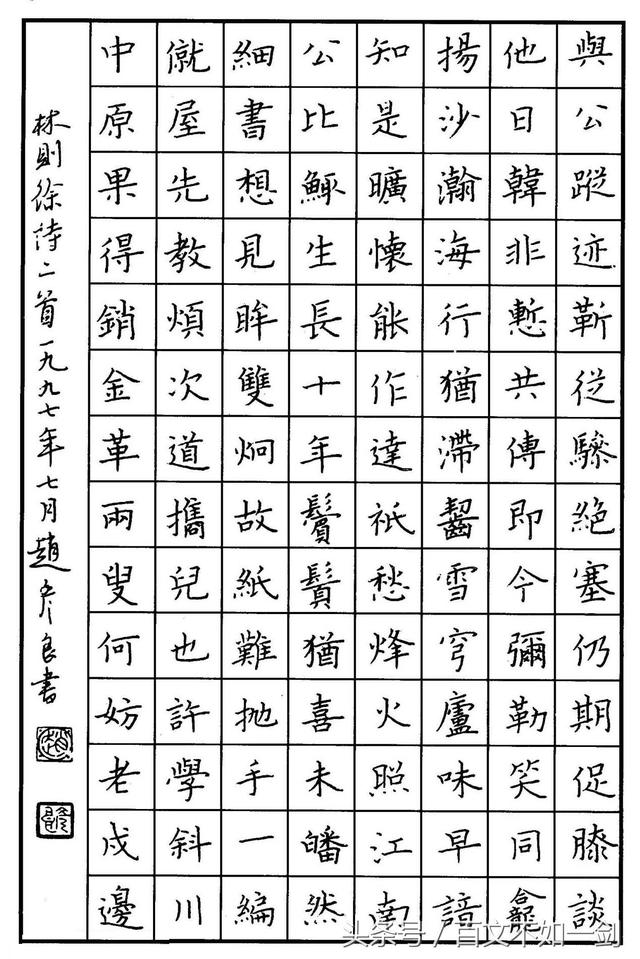 與公蹤迹靳從驂絕塞仍期促膝談
他日韓非慙共傳即今彌勒笑同龕
揚沙瀚海行猶滯齧雪穹廬味早諳
知是曠懷能作達祇愁烽火照江南
公比鯫生長十年鬢鬚猶喜未皤然
細書想見眸雙炯故紙難拋手一編
僦屋先教煩次道攜兒也許學斜川
中原果得銷金革兩叟何妨老戍邊
林則徐詩二首一九九七年七月趙彥良書
头条号/百文不如一剑